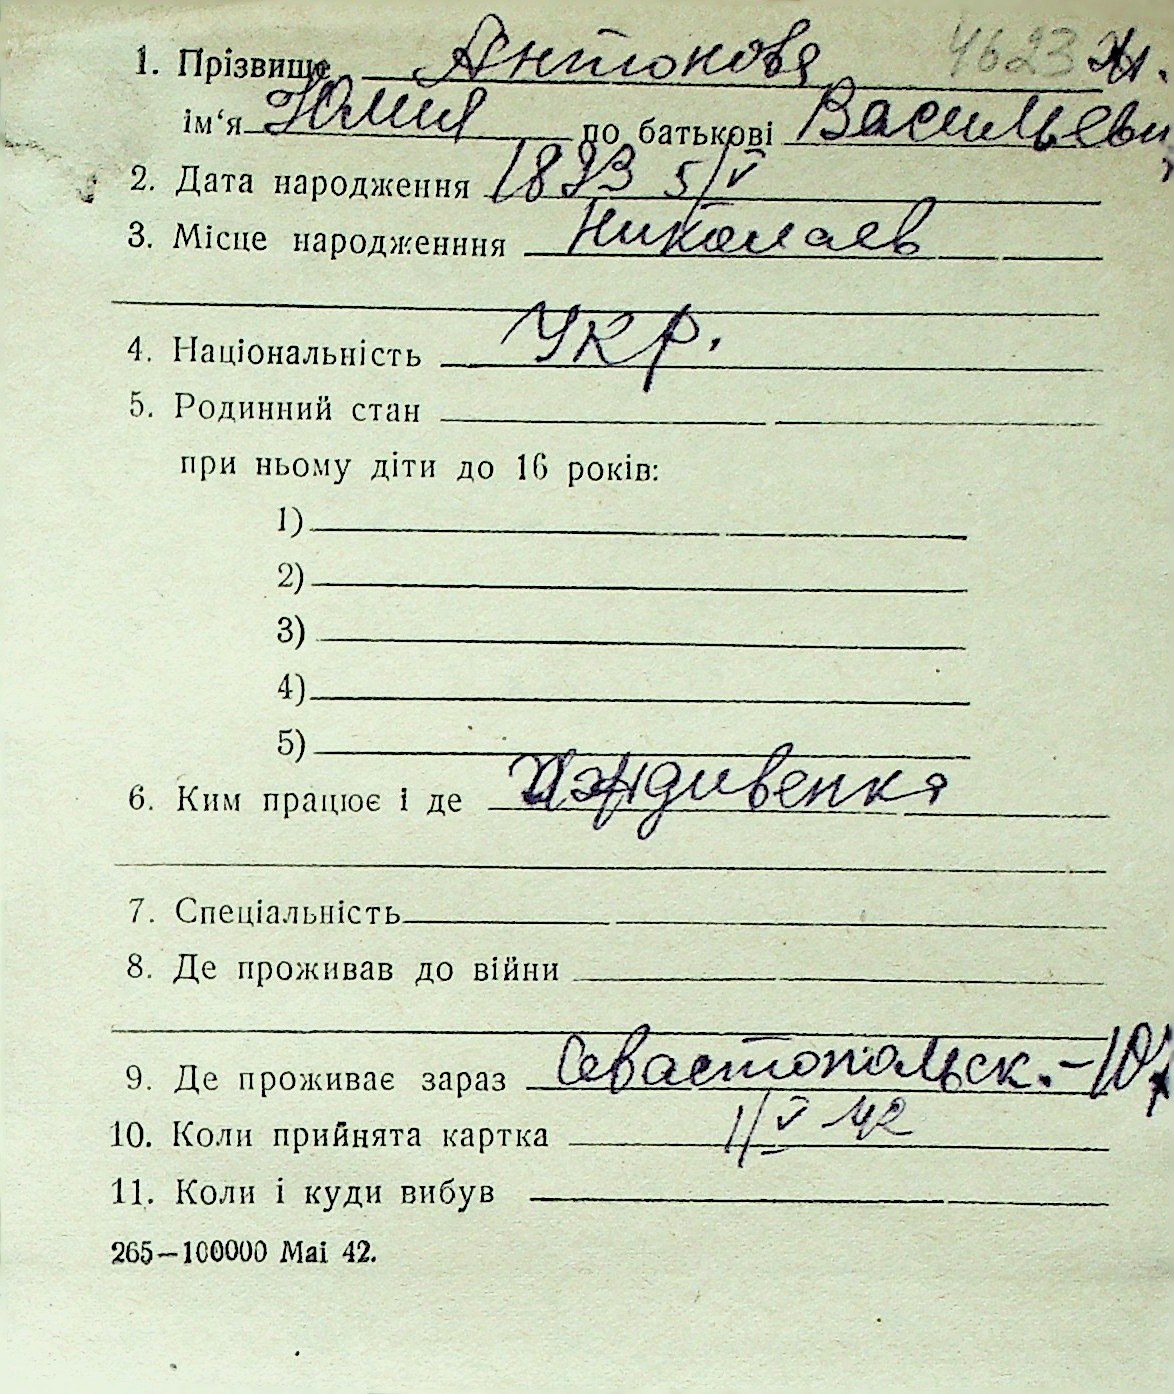 1. Прізвище Антонова 4623
ім‘я Юлия по батькові Васильевн
2. Дата народження 1893 5/V
3. Місце народженння Николаев
4. Національність Укр.
5. Родинний стан
при ньому діти до 16 років:
1)
2)
3)
4)
5)
6. Ким працює і де Иждивенка
7. Спеціальність
8. Де проживав до війни
9. Де проживає зараз Севастопольск. -10
10. Коли прийнята картка 1/V 42
11. Коли і куди вибув
265—100000 Mai 42.